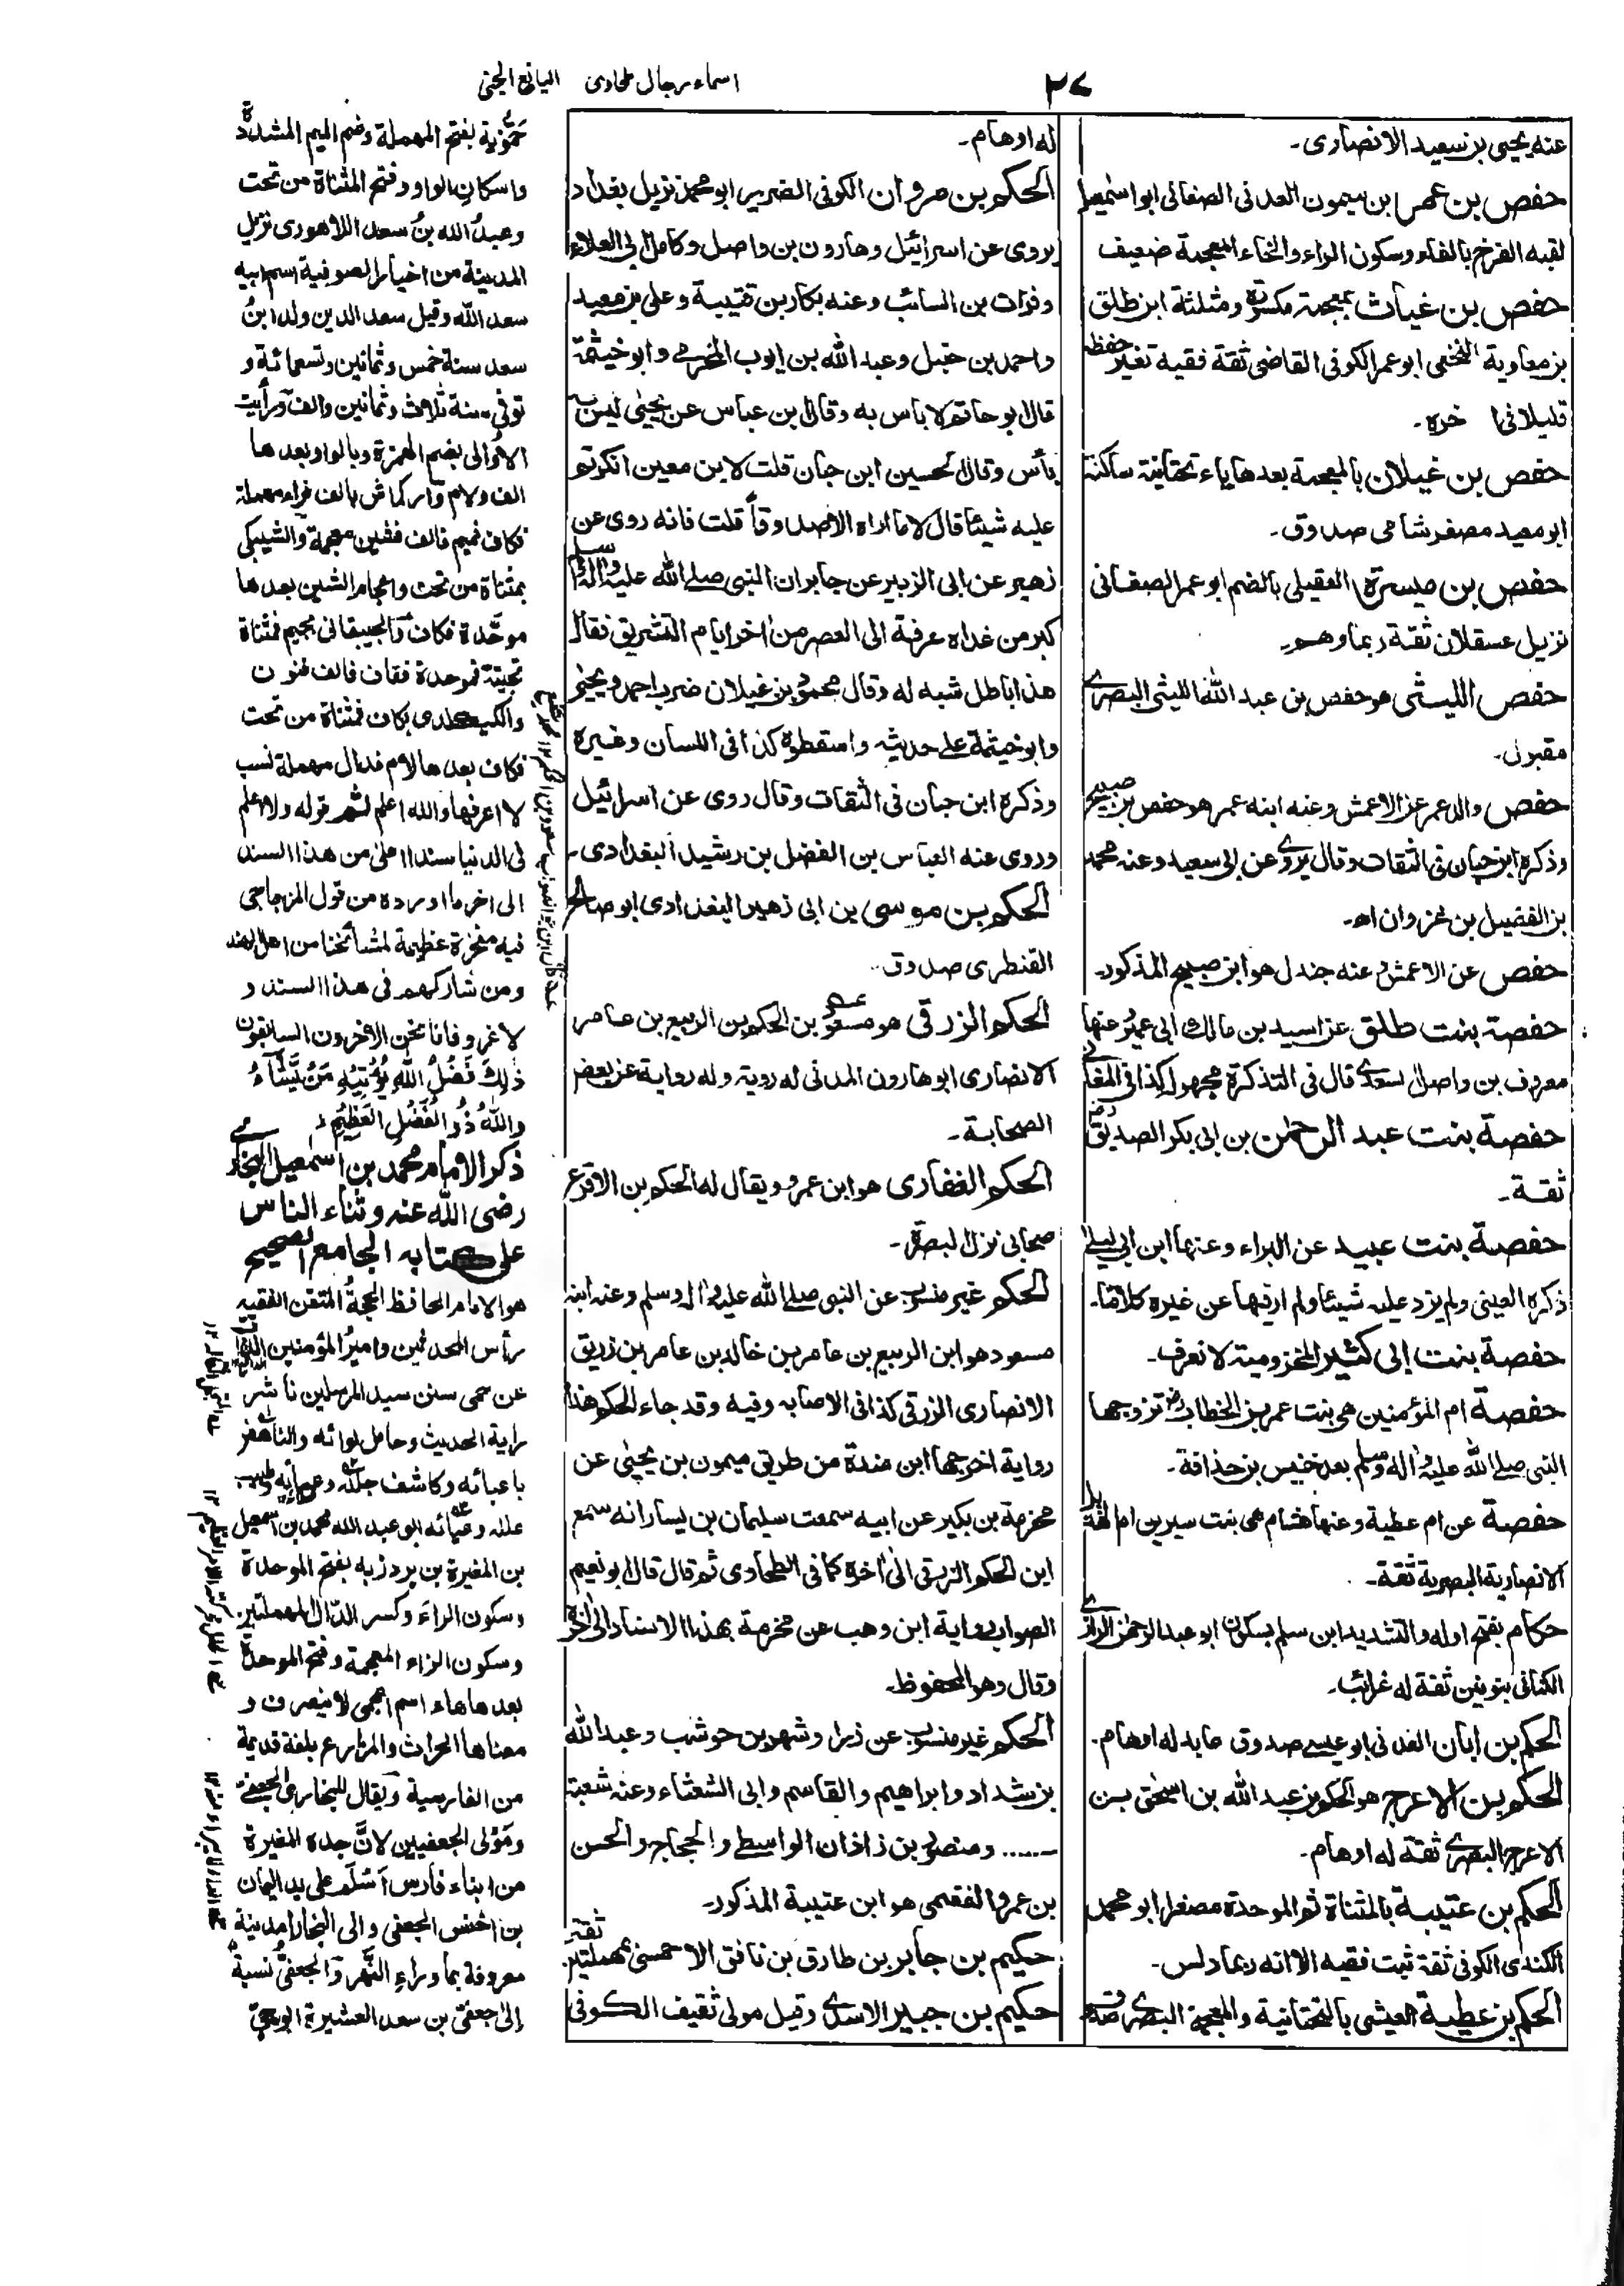 ٢٧
اسماء رجال طحاوی
اليانع الجنی
عنه يحيى بن سعيد الانصاری۔
حفص بن عمر بن ميمون العدنی الصنعانی ابو اسمٰعيل
لقبه الفرخ بالفاء وسكون الراء والخاء المعجمة ضعيف
حفص بن غياث بمعجمة مكسورة ومثلثة ابن طلق
بن معاوية النخعی ابو عمر الكوفی القاضی ثقة فقيه تغير حفظه
قليلا فی اخره۔
حفص بن غيلان بالمعجمة بعدها ياء تحتانية ساكنة
ابو معيد مصغر شامی صدوق۔
حفص بن ميسرة العقيلی بالضم ابو عمر الصنعانی
نزيل عسقلان ثقة ربما وهم۔
حفص الليثی هو حفص بن عبد الله الليثی البصری
مقبول۔
حفص والد عمر عن الاعمش وعنه ابنه عمر هو حفص بن صبيح
وذكره ابن حبان فی الثقات وقال يروی عن ابی سعيد وعنه محمد
بن الفضيل بن غزوان اه۔
حفص عن الاعمش و عنه جندل هو ابن صبيح المذكور۔
حفصة بنت طلق عن اسيد بن مالك ابی عمير عنها
معروف بن واصل السعدی قال فی التذكرة مجهول كذا فی المغانی
حفصة بنت عبد الرحمٰن بن ابی بكر الصديق
ثقة۔
حفصة بنت عبيد عن البراء وعنها ابن ابی ليلی
ذكره العينی ولم يزد عليه شيئا ولم ارفيها عن غيره كلاما۔
حفصة بنت ابی كثير المخزومية لا تعرف۔
حفصة ام المؤمنين هی بنت عمر بن الخطاب رض تزوجها
النبی صلے الله عليه واله وسلم بعد خنيس بن حذافة۔
حفصة عن ام عطية وعنها هشام هی بنت سيرين ام الهذيل
الانصارية البصرية ثقة۔
حكام بفتح اوله والتشديد ابن سلم بسكون ابو عبد الرحمٰن الرازی
الكنانی بنونين ثقة له غرائب۔
الحكم بن ابان العدنی ابو عيسے صدوق عابد له اوهام۔
الحكم بن الاعرج هو الحكم بن عبد الله بن اسحٰق بن
الاعرج البصری ثقة له اوهام۔
الحكم بن عتيبة بالمثناة ثم الموحدة مصغرا ابو محمد
الكندی الكوفی ثقة ثبت فقيه الا انه ربما دلس۔
الحكم بن عطية العيشی بالتحتانية والمعجمة البصری صدوق
له اوهام۔
الحكم بن مروان الكوفی الضرير ابو محمد نزيل بغداد
يروی عن اسرائيل وهارون بن واصل وكامل ابی العلاء
وفرات بن السائب وعنه بكار بن قتيبة وعلی بن معبد
واحمد بن حنبل وعبد الله بن ايوب المخرمی وابو خيثمة
قال ابو حاتم لا باس به وقال بن عباس عن يحيٰی ليس به
بأس وقال الحسين ابن حبان قلت لابن معين انكرتم
عليه شيئا قال لا ما اراه الا صدوقا قلت فانه روی عن
زهير عن ابی الزبير عن جابر ان النبی صلے الله عليه واله وسلم
كبر من غداة عرفة الی العصر من اخر ايام التشريق فقال
هذا باطل شبه له وقال محمود بن غيلان ضرب احمد ويحيی
وابو خيثمة علی حديثه واسقطوه كذا فی اللسان وغيره
وذكره ابن حبان فی الثقات وقال روی عن اسرائيل
وروی عنه العباس بن الفضل بن رشيد البغدادی۔
الحكم بن موسی بن ابی زهير البغدادی ابو صالح
القنطری صدوق۔
الحكم الزرقی هو مسعود بن الحكم بن الربيع بن عامر
الانصاری ابو هارون المدنی له روية وله رواية عن بعض
الصحابة۔
الحكم الغفاری هو ابن عمرو ويقال له الحكم بن الاقرع
صحابی نزل البصرة۔
الحكم غير منسوب عن النبی صلے الله عليه واله وسلم وعنه ابنه
مسعود هو ابن الربيع بن عامر بن خالد بن عامر بن زريق
الانصاری الزرقی كذا فی الاصابه وفيه وقد جاء الحكم هذا
رواية اخرجها ابن مندة من طريق ميمون بن يحيٰی عن
مخرمة بن بكير عن ابيه سمعت سليمان بن يسار انه سمع
ابن الحكم الزرقی الی اخره كما فی الطحاوی ثم قال قال ابو نعيم
الصواب رواية ابن وهب عن مخرمة بهذا الاسناد الی اخره
وقال وهو المحفوظ۔
الحكم غير منسوب عن ذر وشهر بن حوشب وعبد الله
بن شداد وابراهيم والقاسم وابی الشعثاء وعنه شعبة
...... ومنصور بن زاذان الواسطے والحجاج والحسن
بن عمرو الفقيمی هو ابن عتيبة المذكور۔
حكيم بن جابر بن طارق بن نافق الاحمسی بمهملتين ثقة
حكيم بن جبير الاسدی وقيل مولی ثقيف الكوفی
حَمُّوية بفتح المهملة وضم الميم المشددة
واسكان الواو وفتح المثناة من تحت
وعبدُ الله بنُ سعد اللاهوری نزيل
المدينة من اخيار الصوفية اسم ابيه
سعد الله وقيل سعد الدين ولد ابنُ
سعد سنة خمس وثمانين وتسعمائة و
توفی سنة ثلاث وثمانين والف ورأيت
الأوالی بضم الهمزة وبالواو بعدها
الف ولام وآركماش بالف فراء مهملة
فكاف فميم فالف فشين معجمة والشيبكی
بمثناة من تحت واعجام الشين بعدها
موحّدة فكاف والجيبقانی بجيم فمثناة
تحتية فموحدة فقاف فالف فنون
والكيكلدی بكاف فمثناة من تحت
فكاف بعدها لام فدال مهملة نسب
لا اعرفها والله اعلم ثم قوله ولا اعلم
فی الدنيا سندا اعلی من هذا السند
الی اخر ما اورده من قول المزجاجی
فيه مفخرة عظيمة لمشائخنا من اهل الهند
ومن شاركهم فی هذا السند و
لا غرو فانا نحن الاخرون السابقون
ذٰلِكَ فَضْلُ اللهِ يُؤْتِيْهِ مَنْ يَّشَآءُ
وَاللهُ ذُو الْفَضْلِ الْعَظِيْمِ
ذكر الامام محمد بن اسمٰعيل البخاری
رضی الله عنه وثناء الناس
علی كتابه الجامع الصحيح
هو الامام الحافظ الحجةُ المتقن الفقيه
رأس المحدثين واميرُ المؤمنين
عن حمی سنن سيد المرسلين ناشر
راية الحديث وحامل لوائه والناهض
باعبائه وكاشف جلله وعمائه وطبيب
علله وعيائه ابو عبد الله محمد بن اسمعيل
بن المغيرة بن بردزبه بفتح الموحدة
وسكون الراء وكسر الدال المهملتين
وسكون الزاء المعجمة وفتح الموحدة
بعدها هاء اسم اعجمی لا ينصرف و
معناها الحراث والمزارع بلغة قديمة
من الفارسية ويقال للبخاری الجعفے
ومولی الجعفيين لانَّ جده المغيرة
من ابناء فارس اَسْلَم علی يد اليمان
بن اخنس الجعفی والی البخارا مدينة
معروفة بما وراءِ النَّهر والجعفیُّ نسبة
الی جعفیّ بن سعد العشيرة ابوحیّ